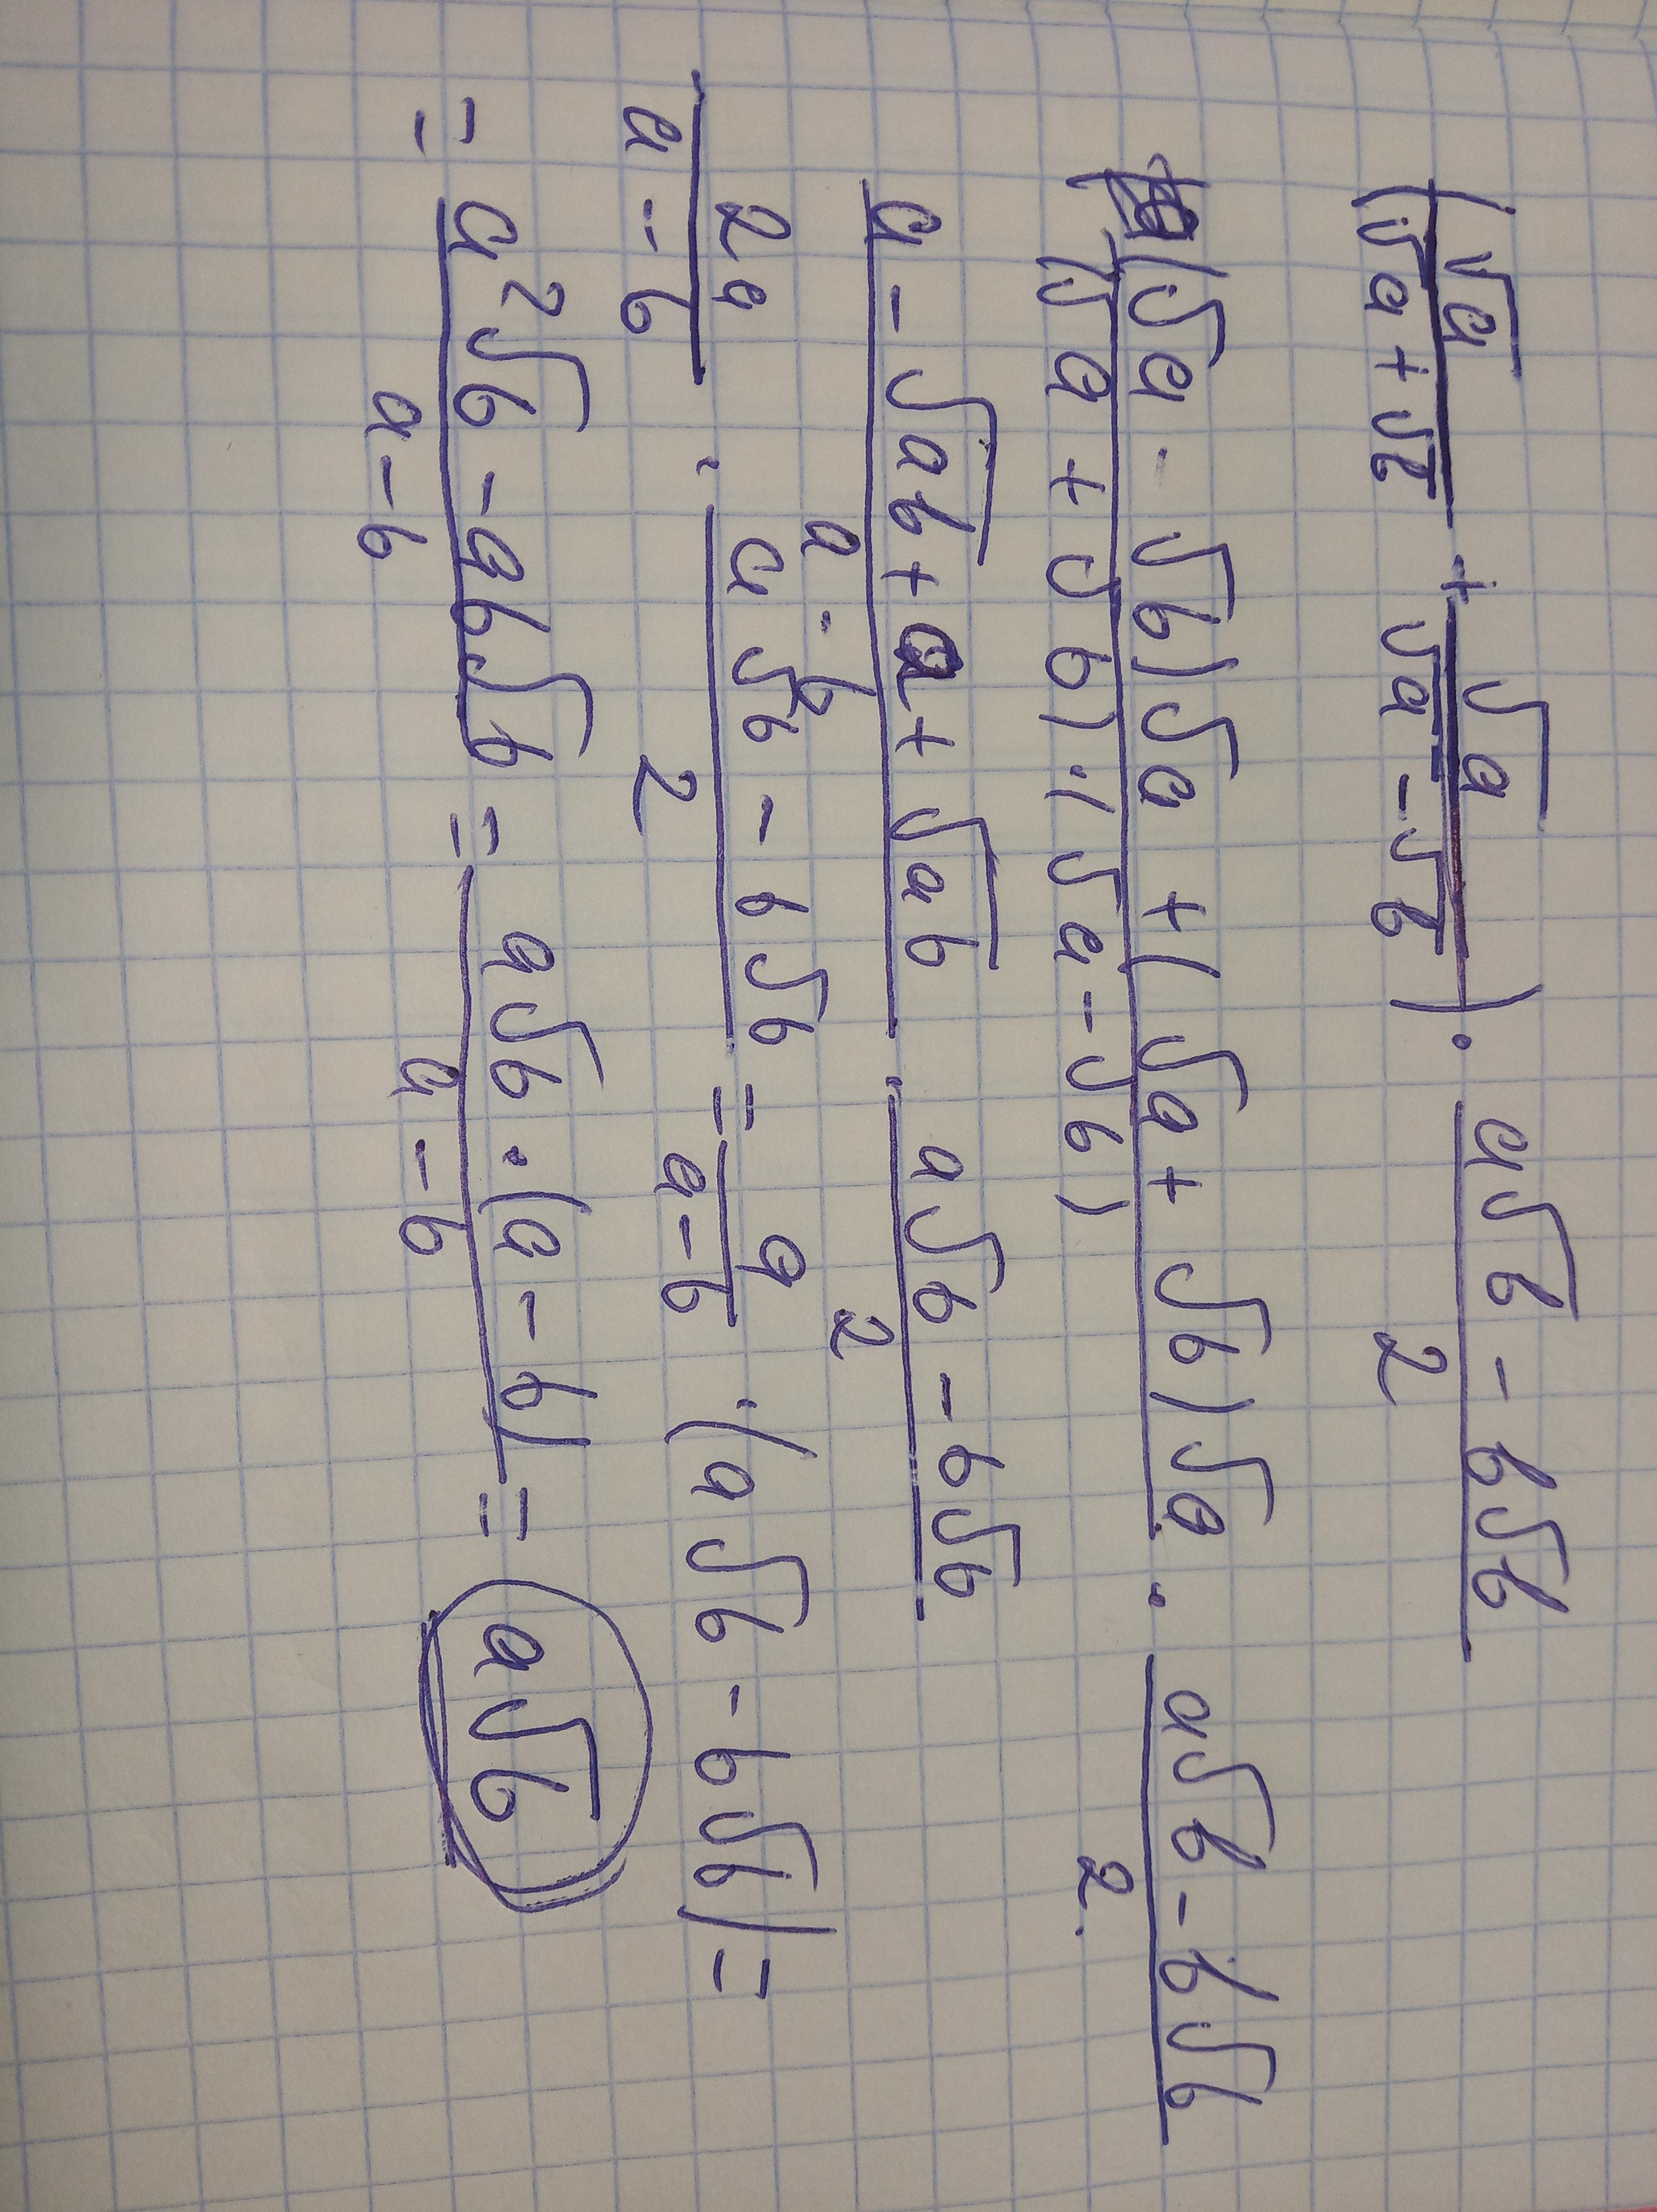 (√a/(√a+√b) + √a/(√a-√b)) · (a√b - b√b)/2
((√a - √b)√a + (√a + √b)√a)/((√a + √b)·(√a - √b)) · (a√b - b√b)/2
(a - √ab + a + √ab)/(a - b) · (a√b - b√b)/2
2a/(a - b) · (a√b - b√b)/2 = a/(a - b) · (a√b - b√b) =
= (a²√b - ab√b)/(a - b) = (a√b · (a - b))/(a - b) = a√b